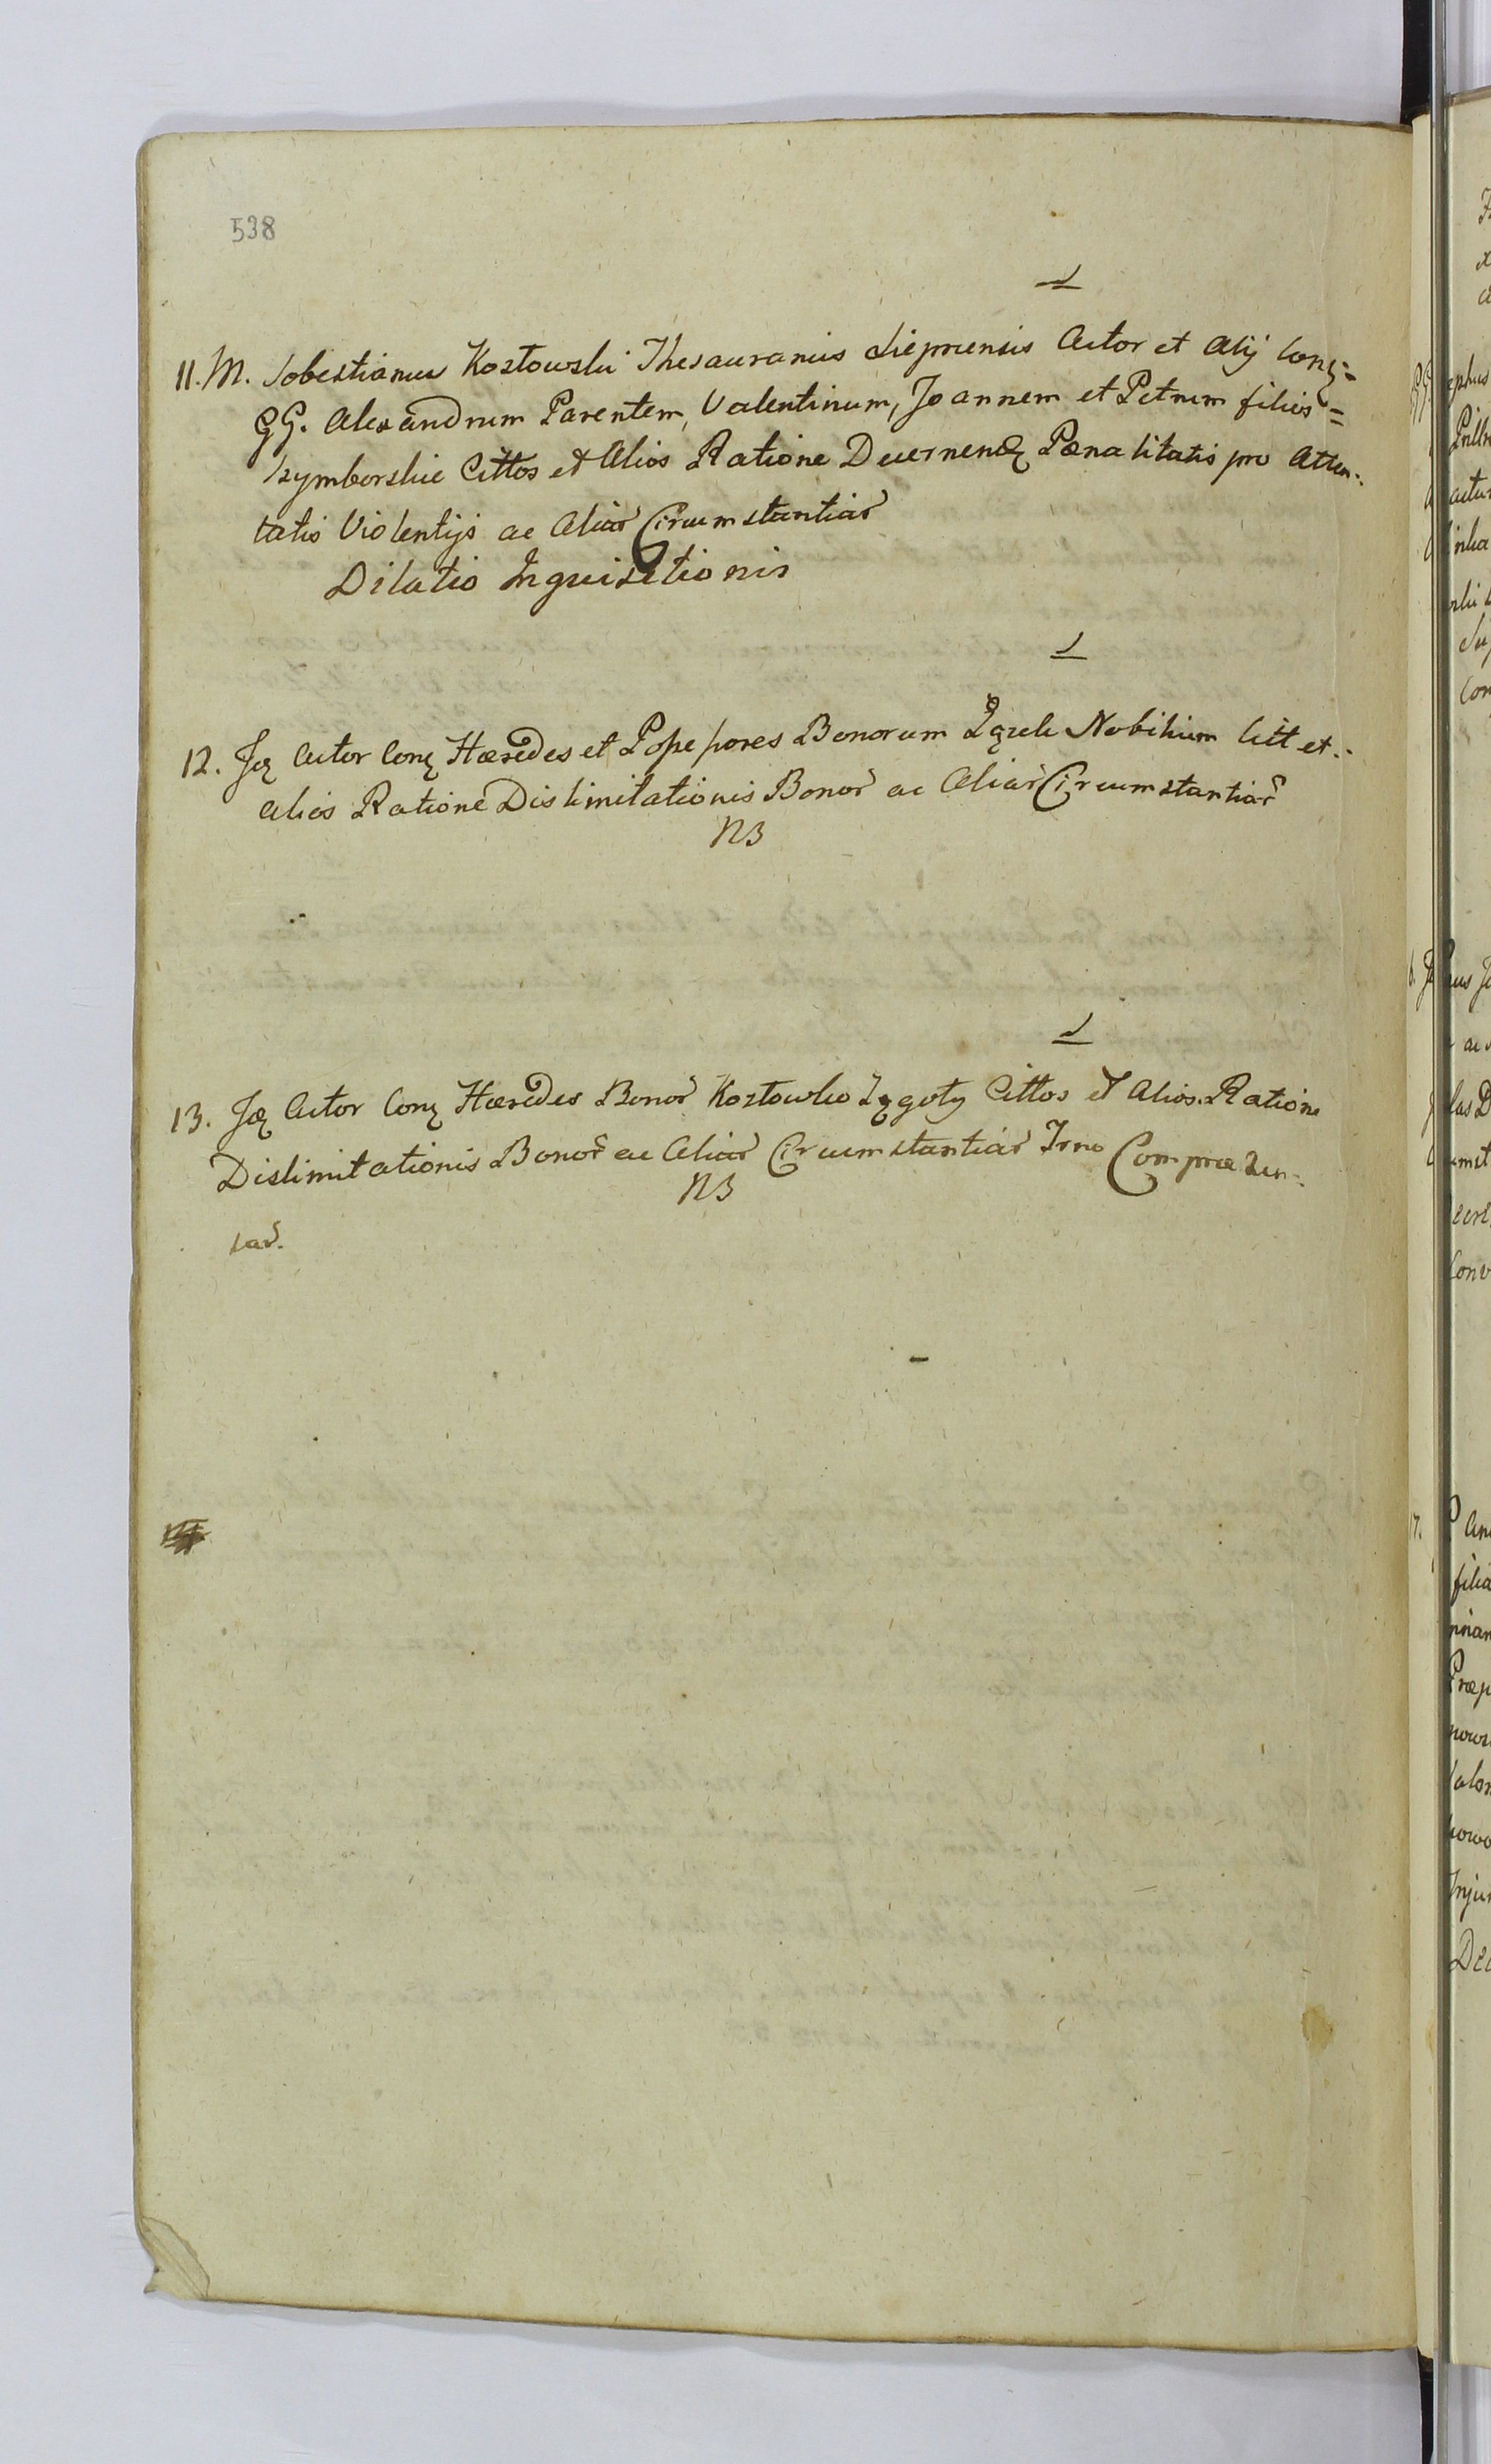 538
11. M. Sobestianus Kozłowski Thesauranius Liepnensis Actor et Alij Conq=
GG. Alexandrum Parentem, Valentinum, Joannem et Petrum filios=
Szymborskie Cittos et Alios Ratione Decernendæ Pænalitatis pro Atten-
tatis Violentijs ac Aliar Circumstantiar
Dilatio Inquisitionis
12. Actor Conq Hæredes et Possessores Bonorum Nobilium Citt et
Alios Ratione Dislimitationis Bonor ac Aliar Circumstantiar
NB
13. Actor Conq Hæredes Bonor Kozłowko Cittos et Alios Ratione
Dislimitationis Bonor ac Aliar Circumstantiar Trno Compræhen-
sar.
NB